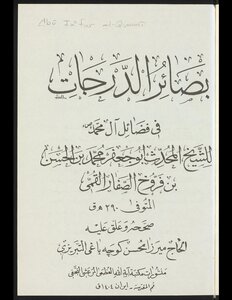 Abū Ja'far al-Qummī
بصائر الدرجات
في فضائل آل محمد
للشيخ المحدث ابو جعفر محمد بن الحسن
بن فروخ الصفار القمي
المتوفى ٢٩٠ ه‍ ق
صححه وعلق عليه
الحاج ميرزا محسن كوچه باغي التبريزي
منشورات مكتبة آية الله العظمى المرعشي النجفي
قم المقدسة - ايران ١٤٠٤ ق